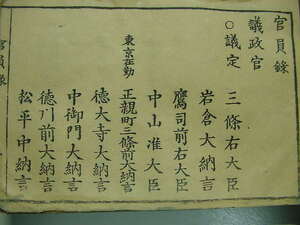 官員錄
議政官
○議定
三條右大臣
岩倉大納言
鷹司前右大臣
中山准大臣
東京在勤
正親町三條前大納言
德大寺大納言
中御門大納言
德川前大納言
松平中納言
官員錄